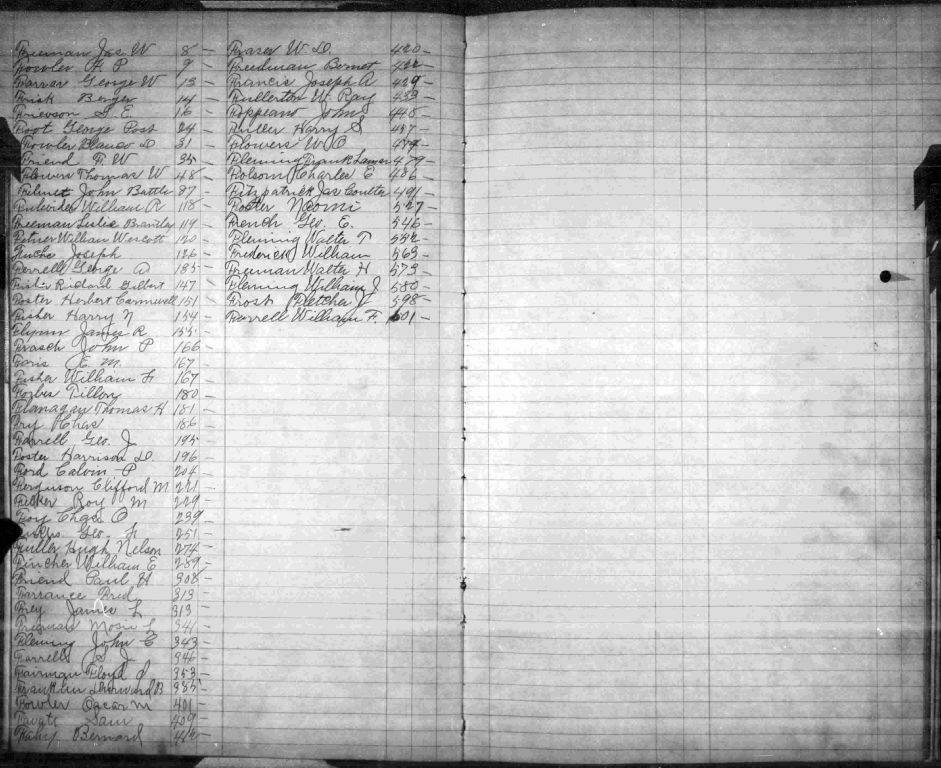 Freeman Jas W 8 –
Fowler F P 9 –
Farrar George W 13 –
Frisk Berger 14 –
Frierson S. E. 16 –
Foot George Post 24 –
Fowler D 31 –
Friend F. W 35 –
Flowers Thomas W 48 –
John Battle 87 –
William R 118 –
Freeman Leslie Brantley 119 –
William Wescott 120 –
Fuchs Joseph 126 –
Ferrell George A 135 –
Richard Gilbert 147 –
Foster Herbert 151 –
Fisher Harry N 154 –
Flynn James R. 155 –
Frasch John P 166 –
Faris E. M. 167 –
Fisher William F 167 –
Forbes 180 –
Flanagan Thomas H 181 –
Fry Chas 186 –
Farrell Geo. J. 195 –
Foster Harrison D. 196 –
Ford Calvin P 204 –
Ferguson Clifford M 221 –
Felker Roy M 229 –
Foy Chas O 239 –
Geo. F. 251 –
Fuller Hugh Nelson 274 –
Fincher William E 289 –
Friend Paul H 308 –
Farrance Fred 313 –
Frey James L 313 –
Freeman L 341 –
Fleming John E 343 –
Farrell S J 346 –
Fairman Floyd J 353 –
Franklin B 385 –
Fowler Oscar M 401 –
Sam 409 –
Bernard
Fraser W. D. 420 –
Freedman Bernet 422 –
Francis Joseph A 429 –
Fullerton W. Ray 433 –
Foppiano John 445 –
Fuller Harry S 457 –
Flowers W. O 474 –
Fleming Frank 479 –
Folsom Charles E 486 –
Fitzpatrick Jas Coulter 491 –
Foster Naomi 527 –
French Geo. E. 546 –
Fleming Walter T 552 –
Frederick William 563 –
Freeman Walter H 573 –
Fleming William J 580 –
Frost Fletcher J 598 –
Farrell William F. 601 –